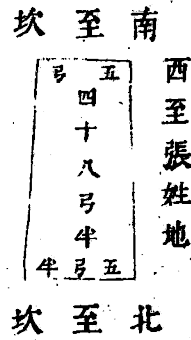 南至坎
西至張姓地
五弓
四十八弓半
五弓半
北至坎